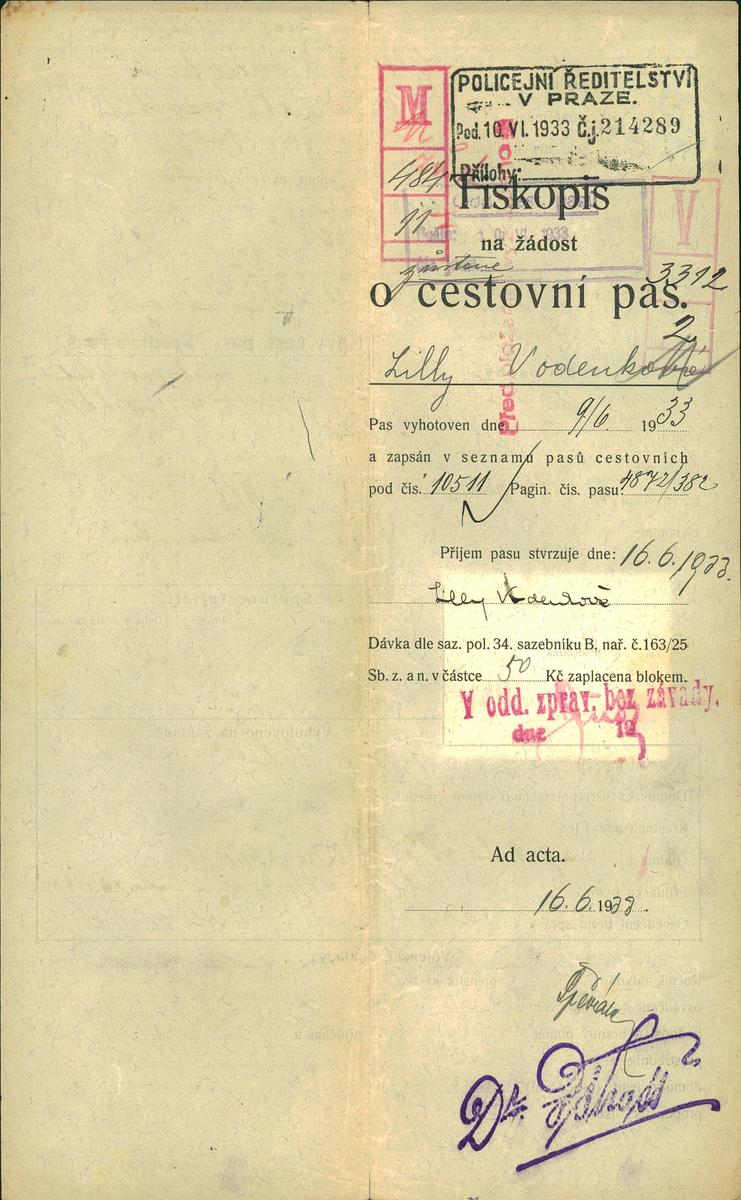 M
POLICEJNÍ ŘEDITELSTVÍ
V PRAZE.
Pod. 10. VI. 1933 Č.j. 214289
Přílohy:
484
11
V
Tiskopis
na žádost
10. VI. 1933
zůstane
3312
o cestovní pas.
2
Lilly Vodenková
Pas vyhotoven dne 9/6. 1933
a zapsán v seznamu pasů cestovních
pod čís. 10511 Pagin. čís. pasu: 4872/382
Příjem pasu stvrzuje dne: 16.6.1933.
Lilly Vodenková
Dávka dle saz. pol. 34. sazebníku B. nař. č. 163/25
Sb. z. a n. v částce 50 Kč zaplacena blokem.
V odd. zprav. bez závady.
dne 19
Ad acta.
16.6.1933.
Dr.